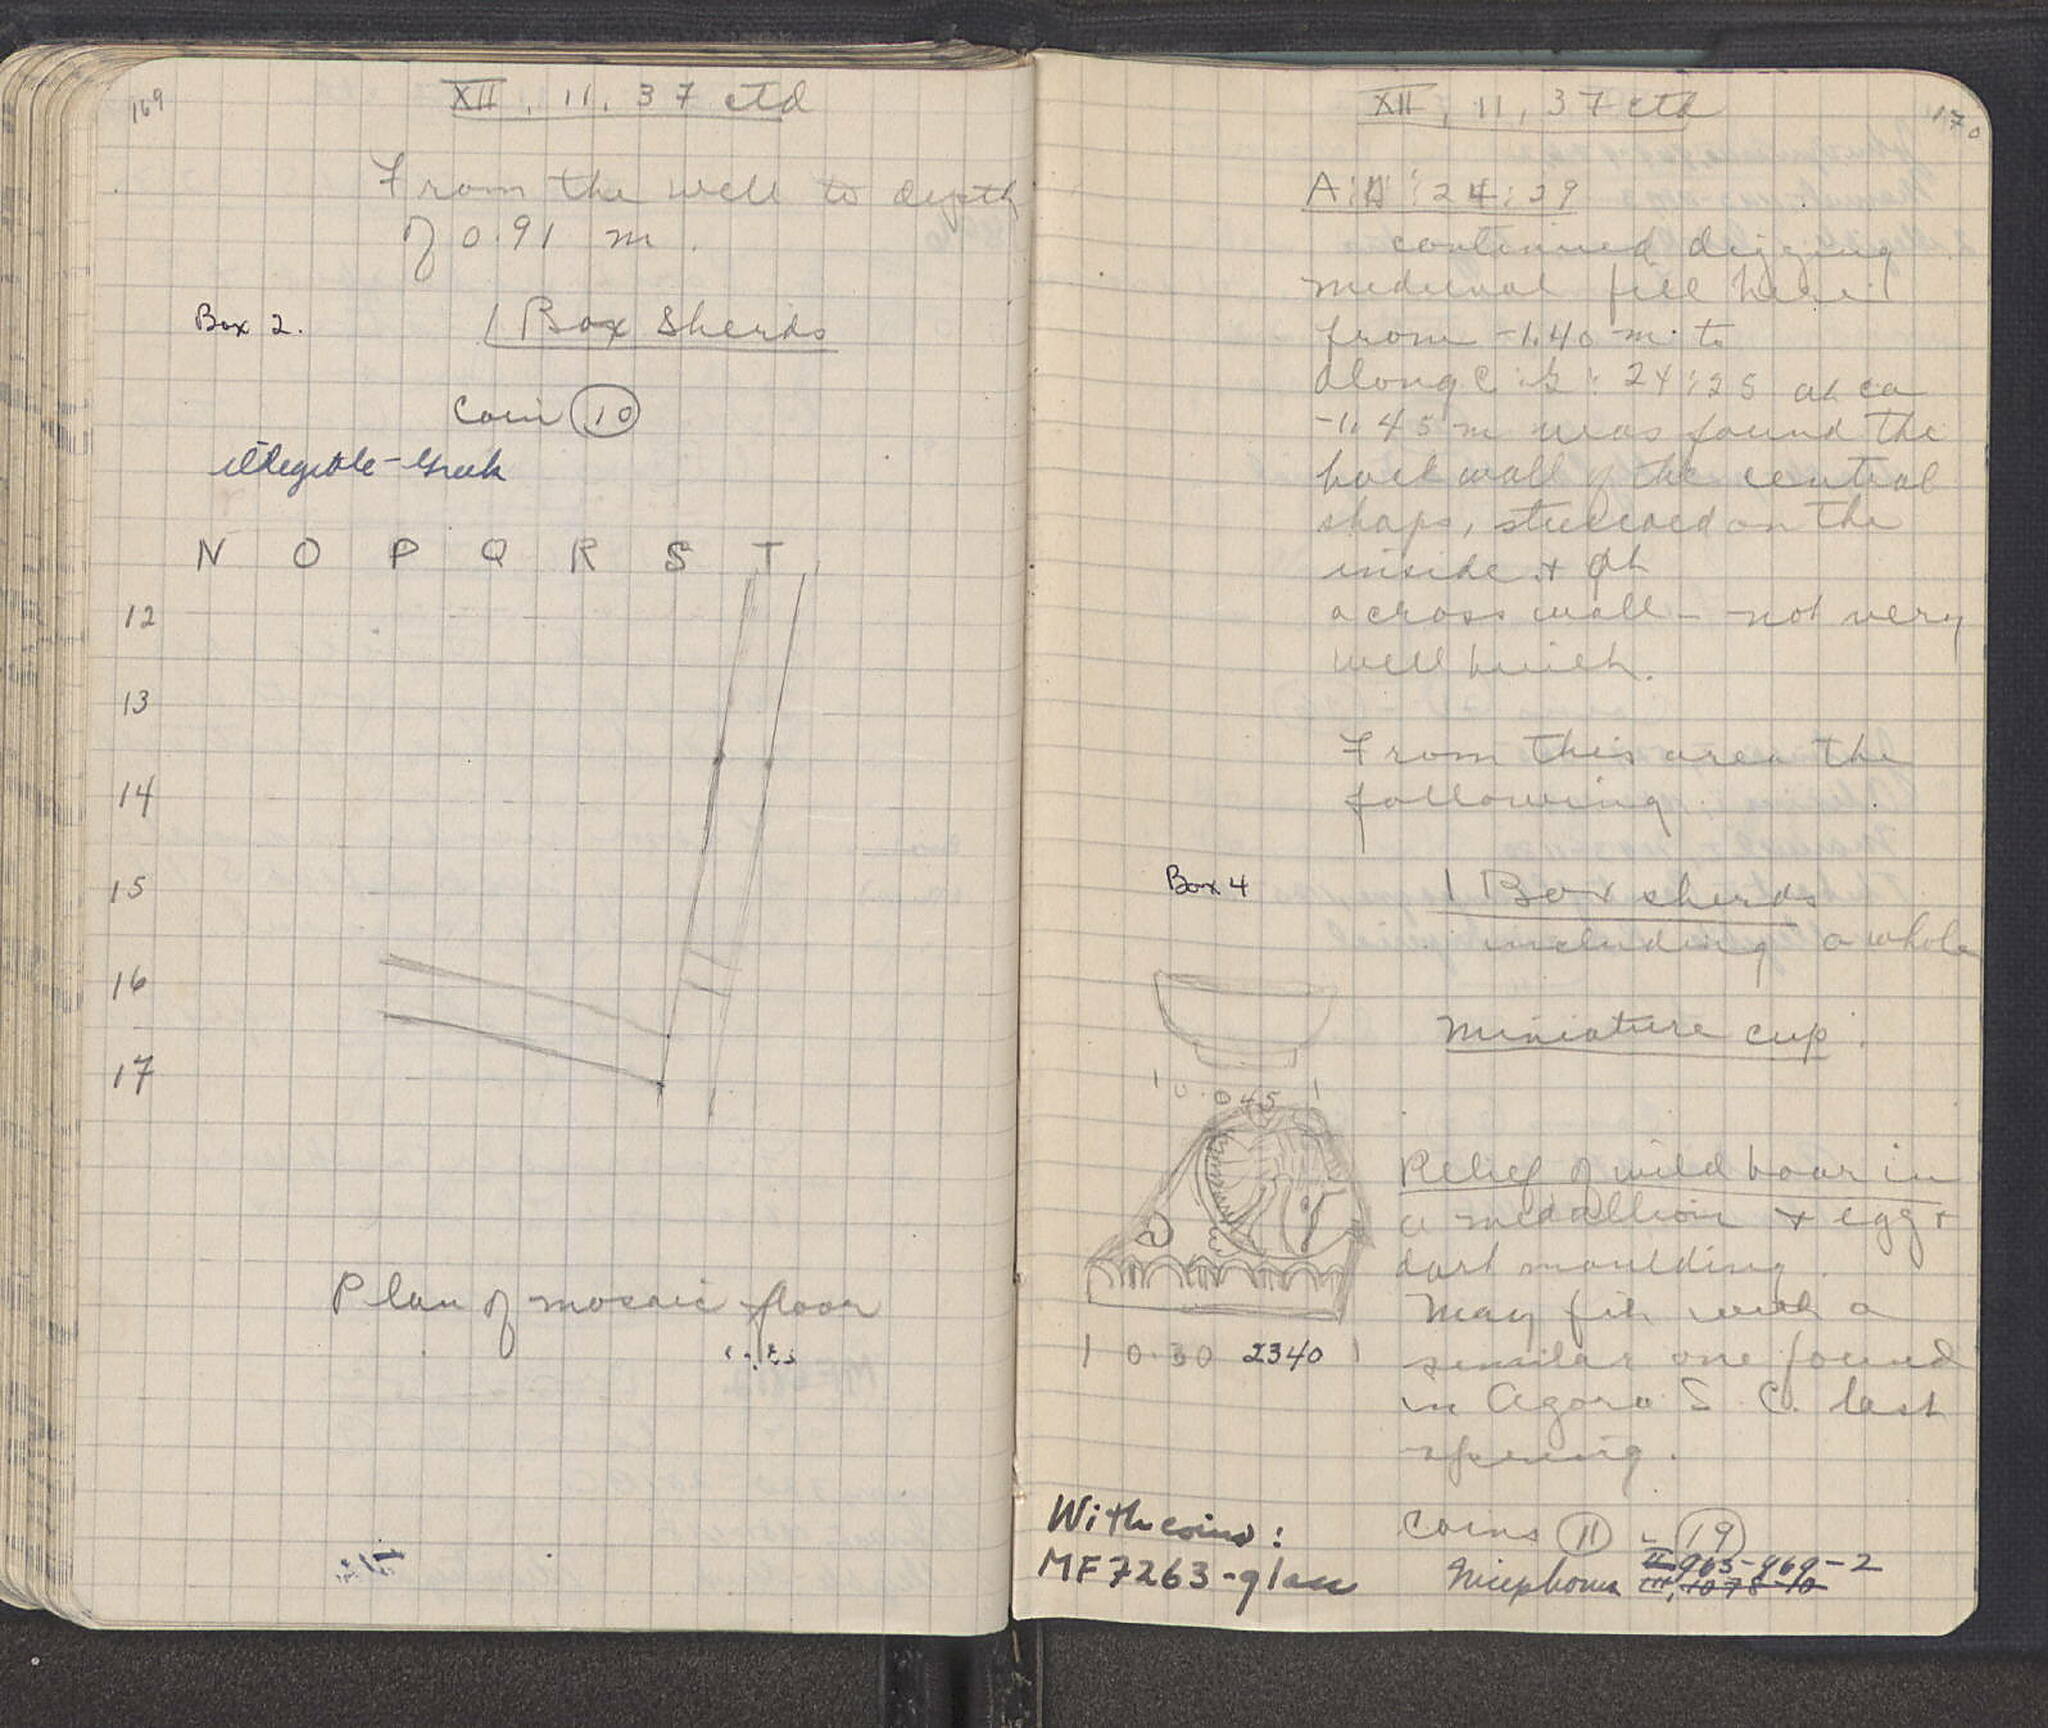 169
XII, 11, 37 ctd
From the well to depth
of 0.91 m.
Box 2.
1 Box Sherds
Coin 10
illegible - Greek
N O P Q R S T
12
13
14
15
16
17
Plan of mosaic floor
170
XII, 11, 37 ctd
: 24 : 29
continued digging
medieval fill here
from -1.40 m. to
along C : : 24 : 25 at ca
-1.45 m was found the
back wall of the central
shops, stuccoed on the
inside +
across wall - not very
well built.
From this area the
following.
Box 4
1 Box sherds
including a whole
miniature cup.
0.045
Relief of wild boar in
a medallion + egg +
dart moulding.
May fit with a
similar one found
in Agora S. C. last
spring.
0.30 2340
With coins:
MF 7263 - glass
Coins 11 - 19
Nicephorus II 963-969-2
III, 1078-10